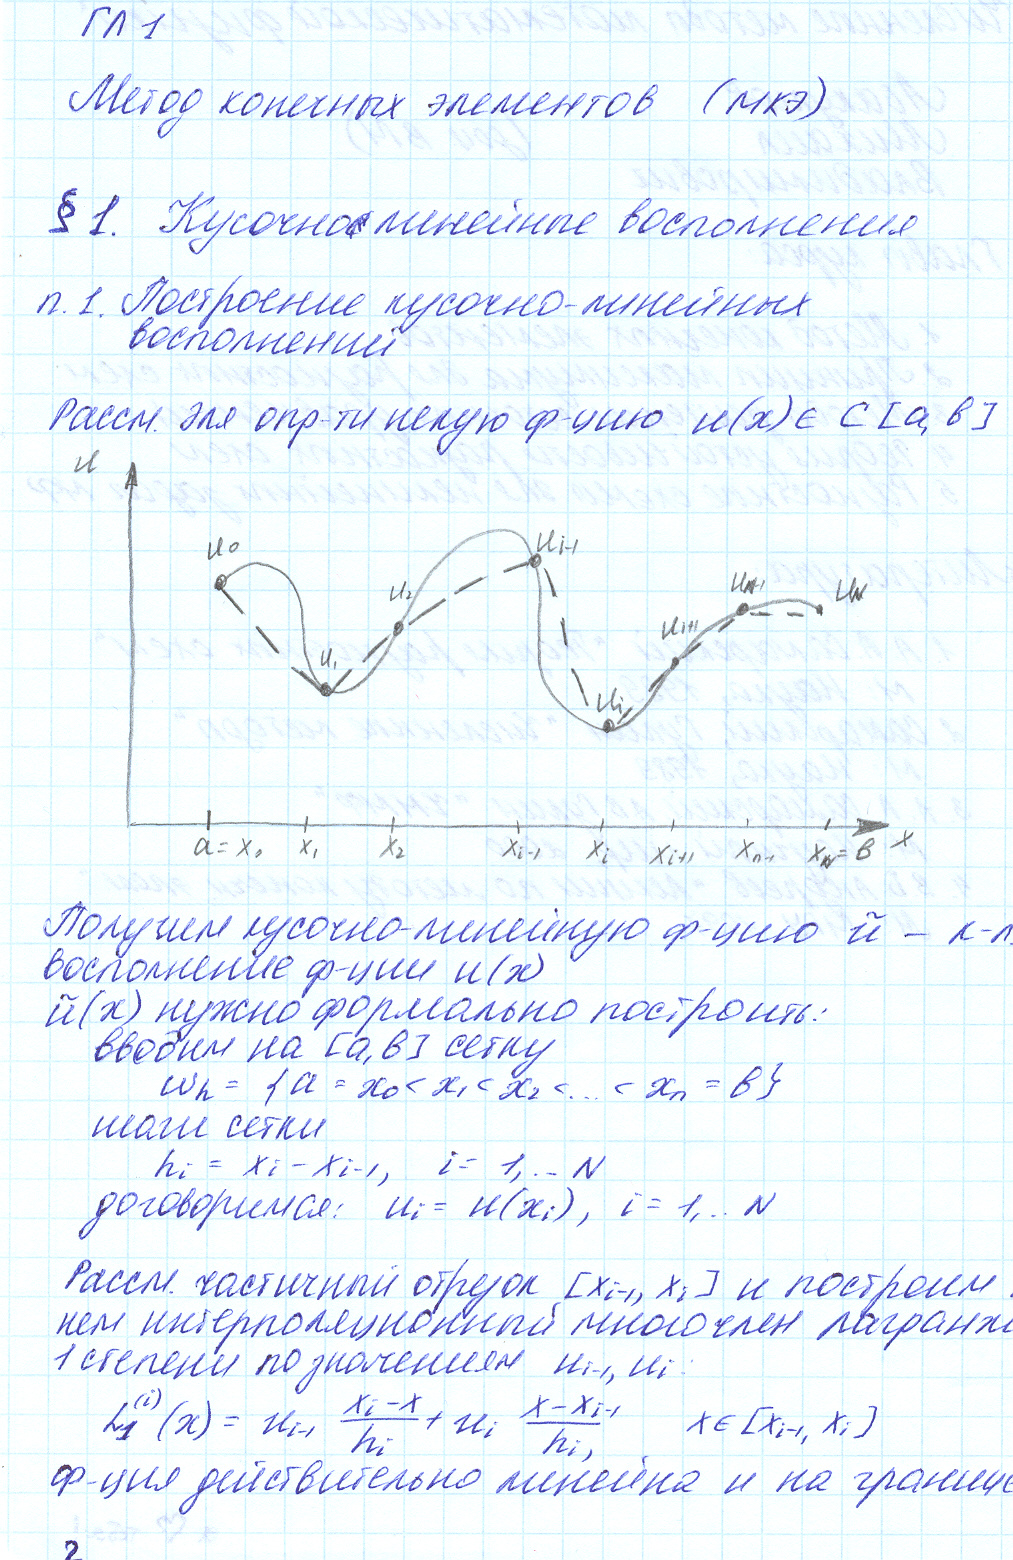 ГЛ 1
Метод конечных элементов (МКЭ)
§ 1. Кусочно-линейные восполнения
п. 1. Построение кусочно-линейных
восполнений
Рассм. для опр-ти некую ф-цию u(x) ∈ C [a, b]
u
u₀
u₁
u₂
uᵢ₋₁
uᵢ
uᵢ₊₁
u_N-1
u_N
a = x₀ x₁ x₂ xᵢ₋₁ xᵢ xᵢ₊₁ xₙ₋₁ x_N = b x
Получим кусочно-линейную ф-цию ũ – к-л.
восполнение ф-ции u(x)
ũ(x) нужно формально построить:
вводим на [a, b] сетку
ωₕ = {a = x₀ < x₁ < x₂ < ... < xₙ = b}
шаги сетки
hᵢ = xᵢ – xᵢ₋₁, i = 1, .. N
договоримся: uᵢ = u(xᵢ), i = 1, .. N
Рассм. частичный отрезок [xᵢ₋₁, xᵢ] и построим
нем интерполяционный многочлен Лагранж
1 степени по значениям uᵢ₋₁, uᵢ:
L₁⁽ⁱ⁾(x) = uᵢ₋₁ (xᵢ – x)/hᵢ + uᵢ (x – xᵢ₋₁)/hᵢ, x ∈ [xᵢ₋₁, xᵢ]
ф-ция действительно линейна и на границе
2